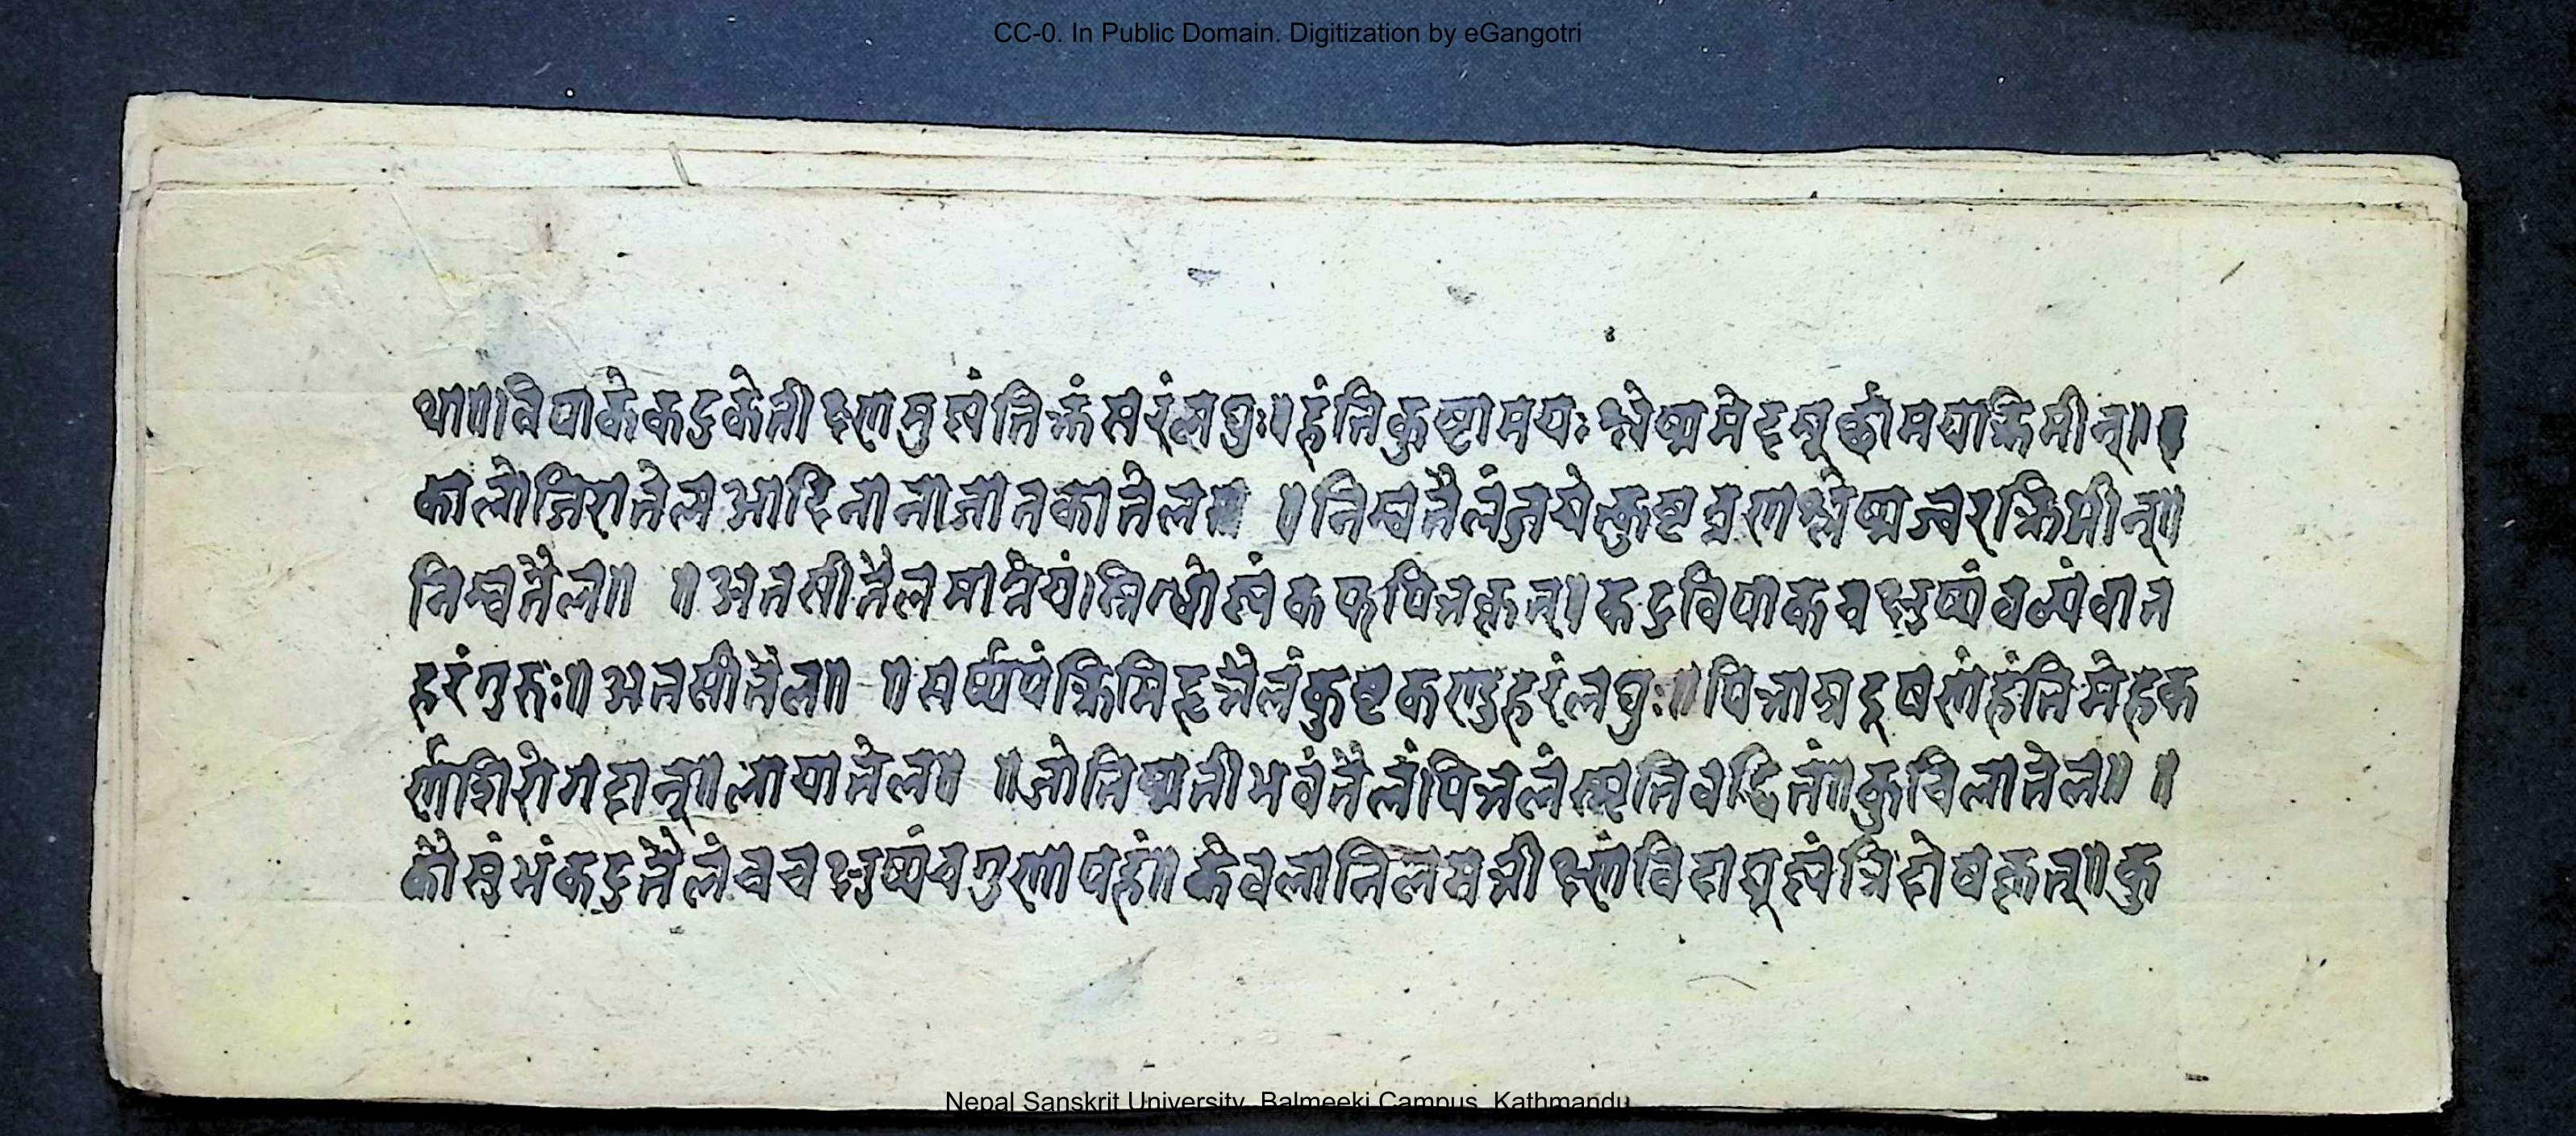 CC-0. In Public Domain. Digitization by eGangotri
था॥विपाके कटुके तीक्ष्णमुष्णं तिक्तं सरं लघुः॥हंति कुष्टामयः श्लेष्ममेदमूर्छामयाक्रिमीन्॥
कालोजिरातेल आदि नाना जातकातेल ॥ निम्वतैलं कुष्टव्रणश्लेष्मज्वरक्रिमीन्॥
निम्वतैल॥ ॥अतसीतैलमाग्नेयं।स्निग्धोष्णं कफपित्तकृत्॥कटुविपाकचक्षुष्यं वल्यं वात
हरं गुरुः॥अतसीतैल॥ ॥सर्ष्यपं क्रिमिहृत्तैलं कुष्टकण्डुहरं लघुः॥पित्तास्रदूषणं हंति मेहक
र्णशिरोगदान्॥लायातेल॥ ॥जोतिष्मतीभवं तैलं पित्तलं कुचिलातेल॥ ॥
कौसुंभं कटुतैलं च चक्षुष्यं च गुणापहं॥ केवलानिलमतीक्ष्णं विदाह्युष्णं त्रिदोषकृत्॥कु
Nepal Sanskrit University, Balmeeki Campus, Kathmandu